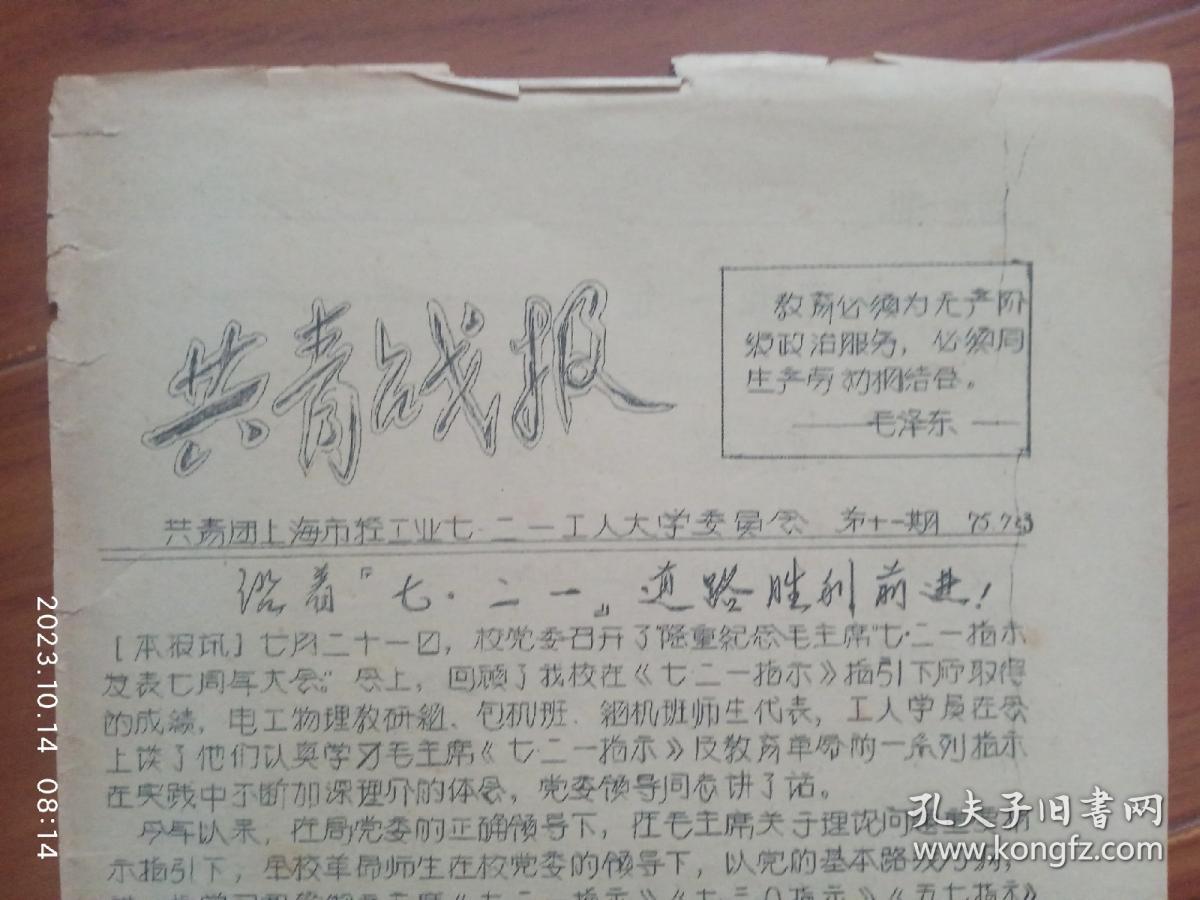 共青战报
教育必须为无产阶
级政治服务，必须同
生产劳动相结合。
——毛泽东——
共青团上海市轻工业七·二一工人大学委员会 第十一期 75.7.23
沿着『七·二一』道路胜利前进！
[本报讯] 七月二十一日，校党委召开了“隆重纪念毛主席七·二一指示
发表七周年大会。”会上，回顾了我校在《七·二一指示》指引下所取得
的成绩，电工物理教研组、包机班、铟机班师生代表，工人学员在会
上谈了他们认真学习毛主席《七·二一指示》及教育革命的一系列指示
在实践中不断加深理介的体会，党委领导同志讲了话。
今年以来，在局党委的正确领导下，在毛主席关于理论问题重要指
示指引下，全校革命师生在校党委的领导下，以党的基本路线为纲，
学习 主席《七·二一指示》《七·三〇指示》《五七指示》
孔夫子旧书网
www.kongfz.com
2023.10.14 08:14